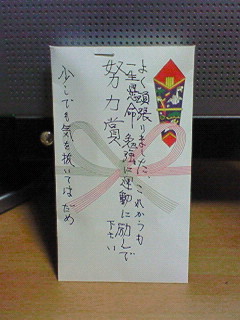 よく頑張りました、これからも
一生懸命勉強に運動に励んで
下さい
努力賞
少しでも気を抜いてはだめ